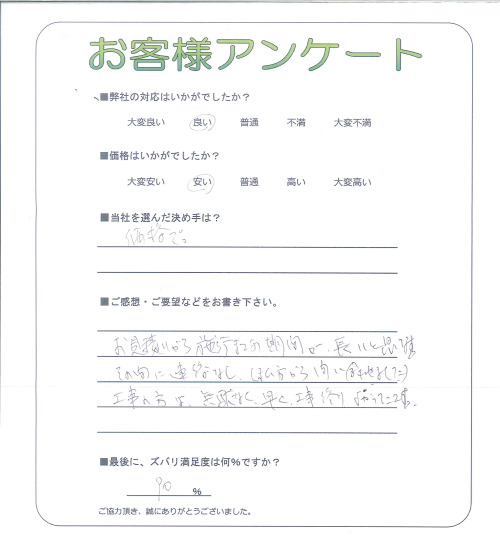 お客様アンケート
■弊社の対応はいかがでしたか？
大変良い 良い 普通 不満 大変不満
■価格はいかがでしたか？
大変安い 安い 普通 高い 大変高い
■当社を選んだ決め手は？
価格で。
■ご感想・ご要望などをお書き下さい。
お見積りから施行までの期間が、長いと思
その間に連絡なし、
工事の方は、無駄なく、早く、工事
■最後に、ズバリ満足度は何%ですか？
90 %
ご協力頂き、誠にありがとうございました。